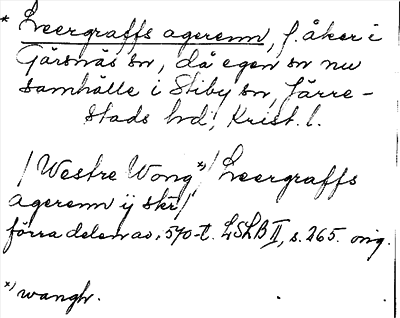 * Leergraffs agerenn, f. åker i
Gärsnäs sn, då egen sn nu
samhälle i Stiby sn, Järre-
stads hd, Krist. l.
/Westre Wong *)/ Leergraffs
agerenn ij skr/
förra delen av 1570-t. LSLB II, s. 265. orig.
*) wangh.